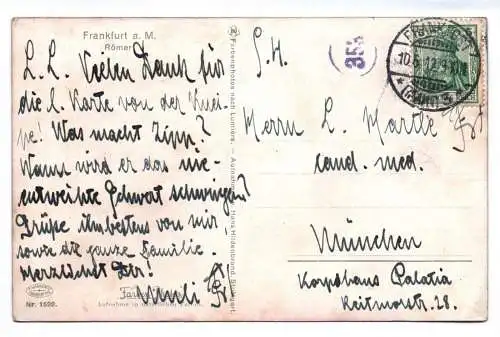 Frankfurt a. M.
Römer
L. L. Vielen Dank für
die l. Karte von der Knei-
pe. Was macht Zipp?
Wann wird er das nie
entweihte Schwert schwingen?
Grüße ihm bestens von mir,
sowie die ganze Familie.
Herzlichst Dir!
Willi
Nr. 1599.
Farbenphotos nach Lumière. – Aufnahmen v. Hans Hildenbrand Stuttgart.
S. H.
35b
10. 12. 4
Herrn L. Martle
cand. med.
München
Korpshaus Palatia
Reitmorstr. 28.